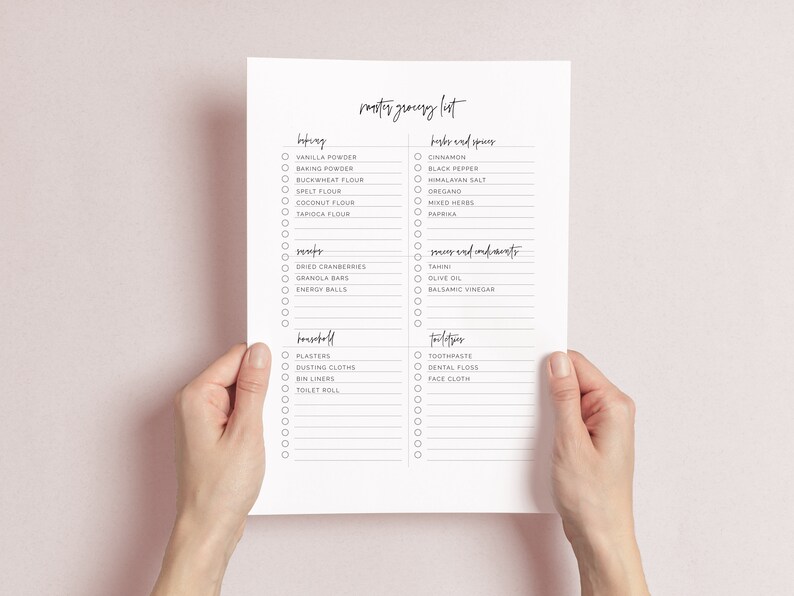 master grocery list
baking
VANILLA POWDER
BAKING POWDER
BUCKWHEAT FLOUR
SPELT FLOUR
COCONUT FLOUR
TAPIOCA FLOUR
snacks
DRIED CRANBERRIES
GRANOLA BARS
ENERGY BALLS
household
PLASTERS
DUSTING CLOTHS
BIN LINERS
TOILET ROLL
herbs and spices
CINNAMON
BLACK PEPPER
HIMALAYAN SALT
OREGANO
MIXED HERBS
PAPRIKA
sauces and condiments
TAHINI
OLIVE OIL
BALSAMIC VINEGAR
toiletries
TOOTHPASTE
DENTAL FLOSS
FACE CLOTH